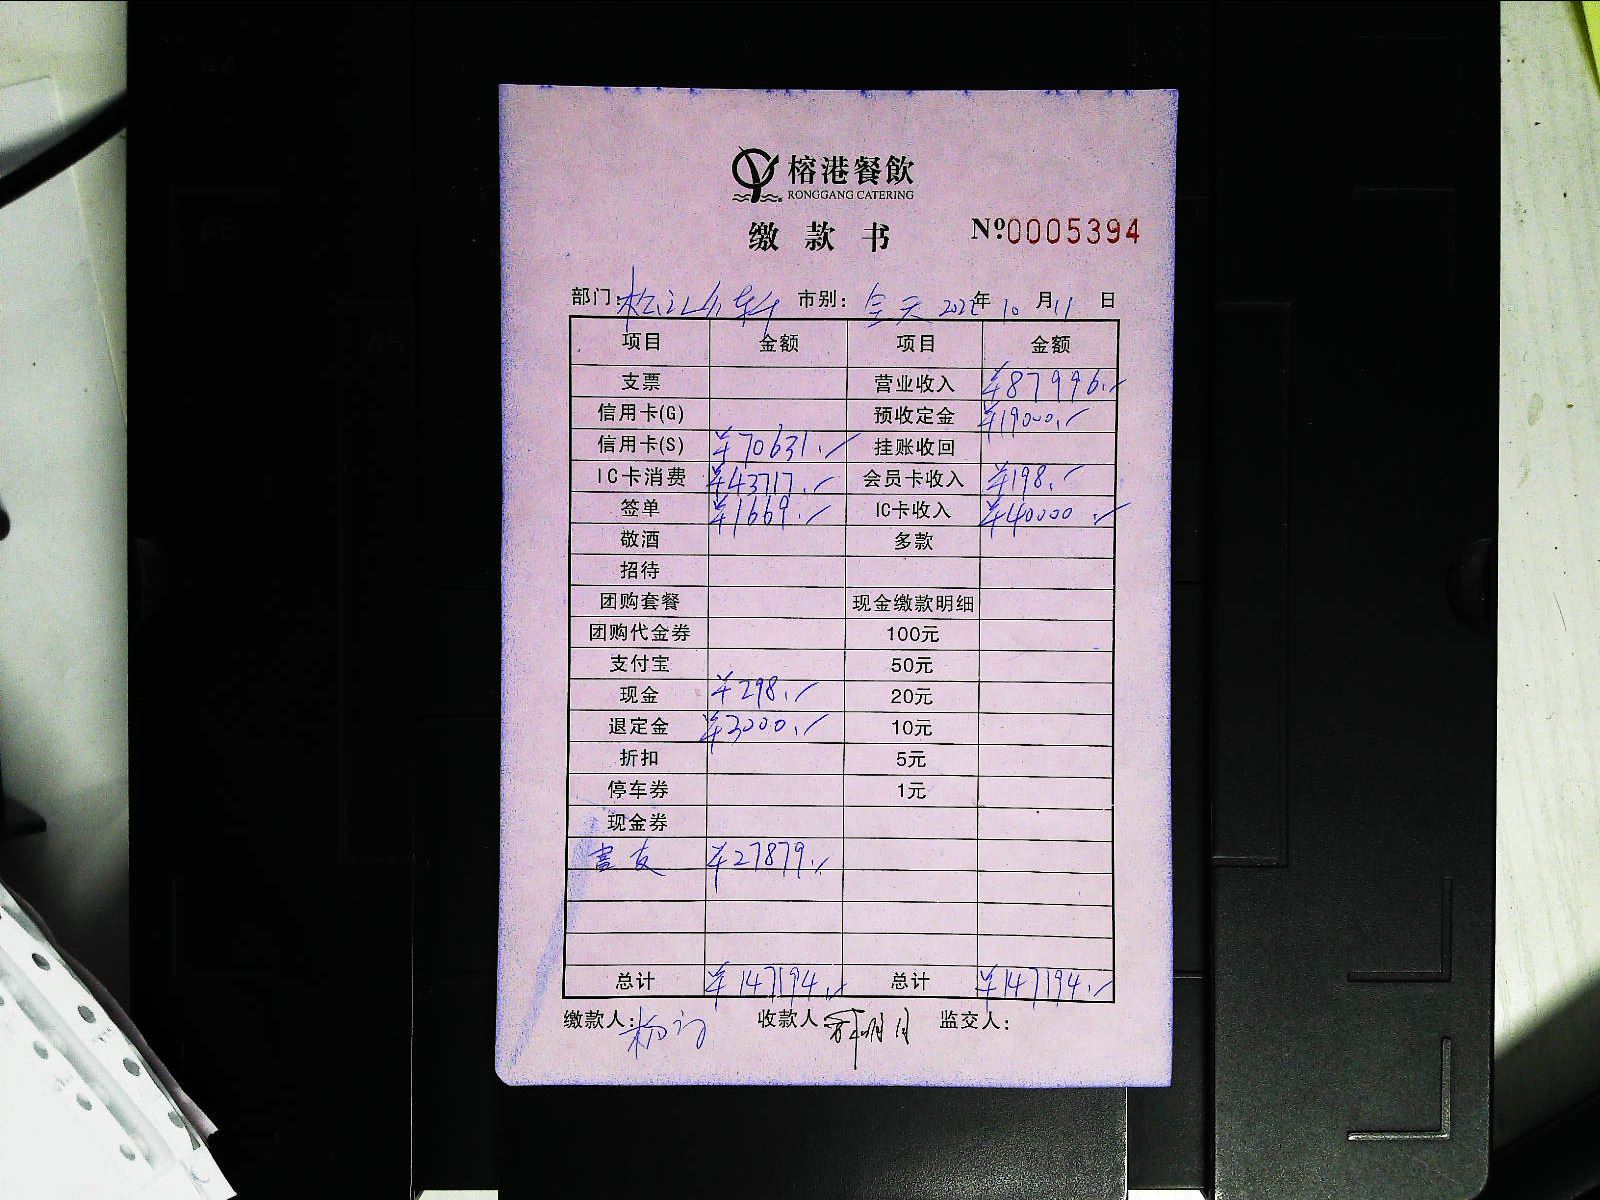 榕港餐飲
RONGGANG CATERING
缴款书 №0005394
部门: 市别: 全天 2022年 10月11日
项目 金额 项目 金额
支票 营业收入 ¥87996.
信用卡(G) 预收定金 ¥19000.
信用卡(S) ¥70631. 挂账收回
IC卡消费 ¥43717. 会员卡收入 ¥198.
签单 ¥1669. IC卡收入 ¥40000.
敬酒 多款
招待
团购套餐 现金缴款明细
团购代金券 100元
支付宝 50元
现金 ¥298. 20元
退定金 ¥3000. 10元
折扣 5元
停车券 1元
现金券
¥27879.
总计 ¥147194. 总计 ¥147194.
缴款人: 收款人: 监交人: